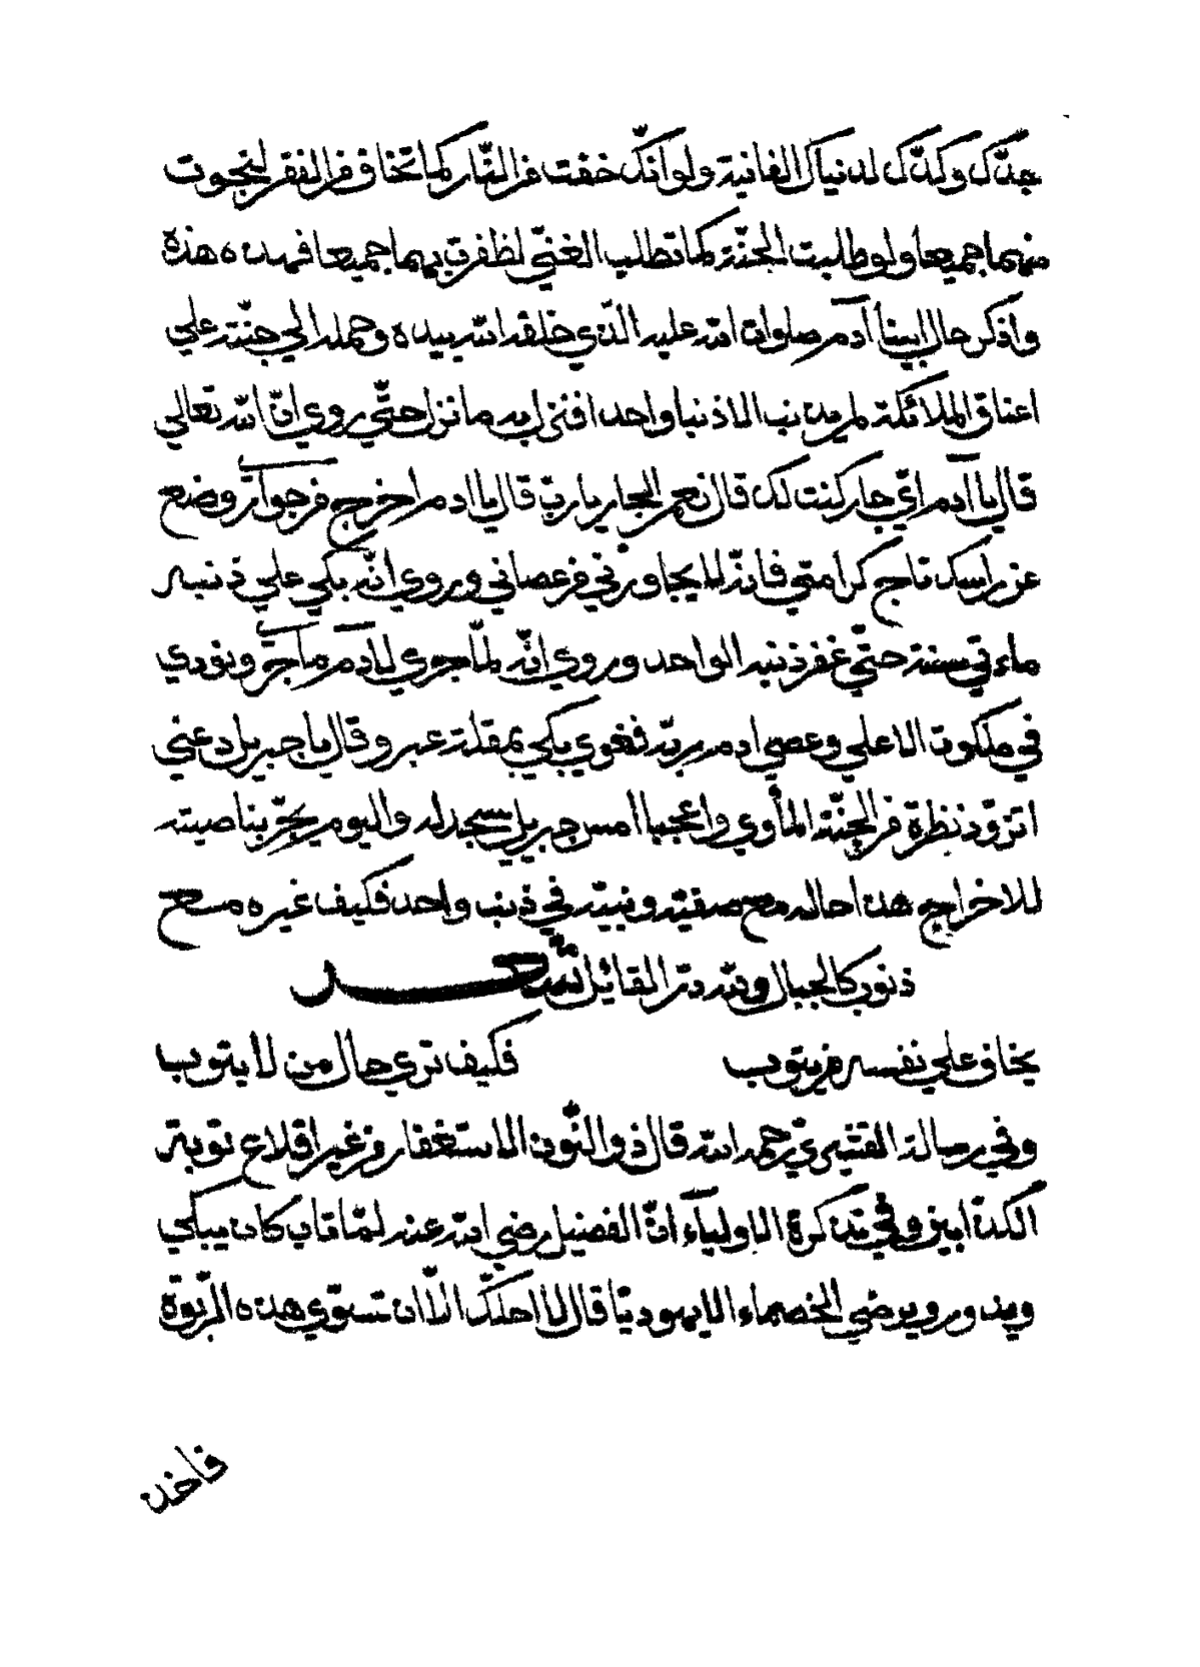 جدّك وكدّك لدنياك الفانية ولو انّك خفت من النّار كما تخاف من الفقر لنجوت
منهما جميعا ولو طلبت الجنّة كما تطلب الغنيّ لظفرت بهما جميعا فهذه هذه
واذكر حال ابينا آدم صلوات الله عليه الّذي خلقه الله بيده وحمله الي جنّته علي
اعناق الملائكة لم يذنب الا ذنبا واحدا فنزل به ما نزل حتّي روي انّ الله تعالي
قال يا آدم ايّ جار كنت لك قال نعم الجار يا ربّ قال يا ادم اخرج من جواري وضع
عن راسك تاج كرامتي فانّه لا يجاورني من عصاني وروي انّه بكي علي ذنبه
مائتي سنة حتّي غفر ذنبه الواحد وروي انّه لمّا جري لآدم ما جري ونودي
في ملكوت الاعلي وعصي ادم ربّه فغوي بكي بمقلة عبر وقال يا جبريل دعني
اتزوّد نظرة من الجنّة المأوي واعجبا امس جبريل يسجد له واليوم يجرّ بناصيته
للاخراج هذا حاله مع صفيّه ونبيّه في ذنب واحد فكيف غيره مع
ذنوب كالجبال ولله درّ القائل شعر
يخاف علي نفسه من يتوب فكيف تري حال من لا يتوب
وفي رسالة القشيري رحمه الله قال ذو النّون الاستغفار من غير اقلاع توبة
الكذّابين وفي تذكرة الاولياء انّ الفضيل رضي الله عنه لمّا تاب كان يبكي
ويدور ويرضي الخصماء الا يهوديّا قال لا احلّك الّا ان تسوّي هذه الرّبوة
فاخذ